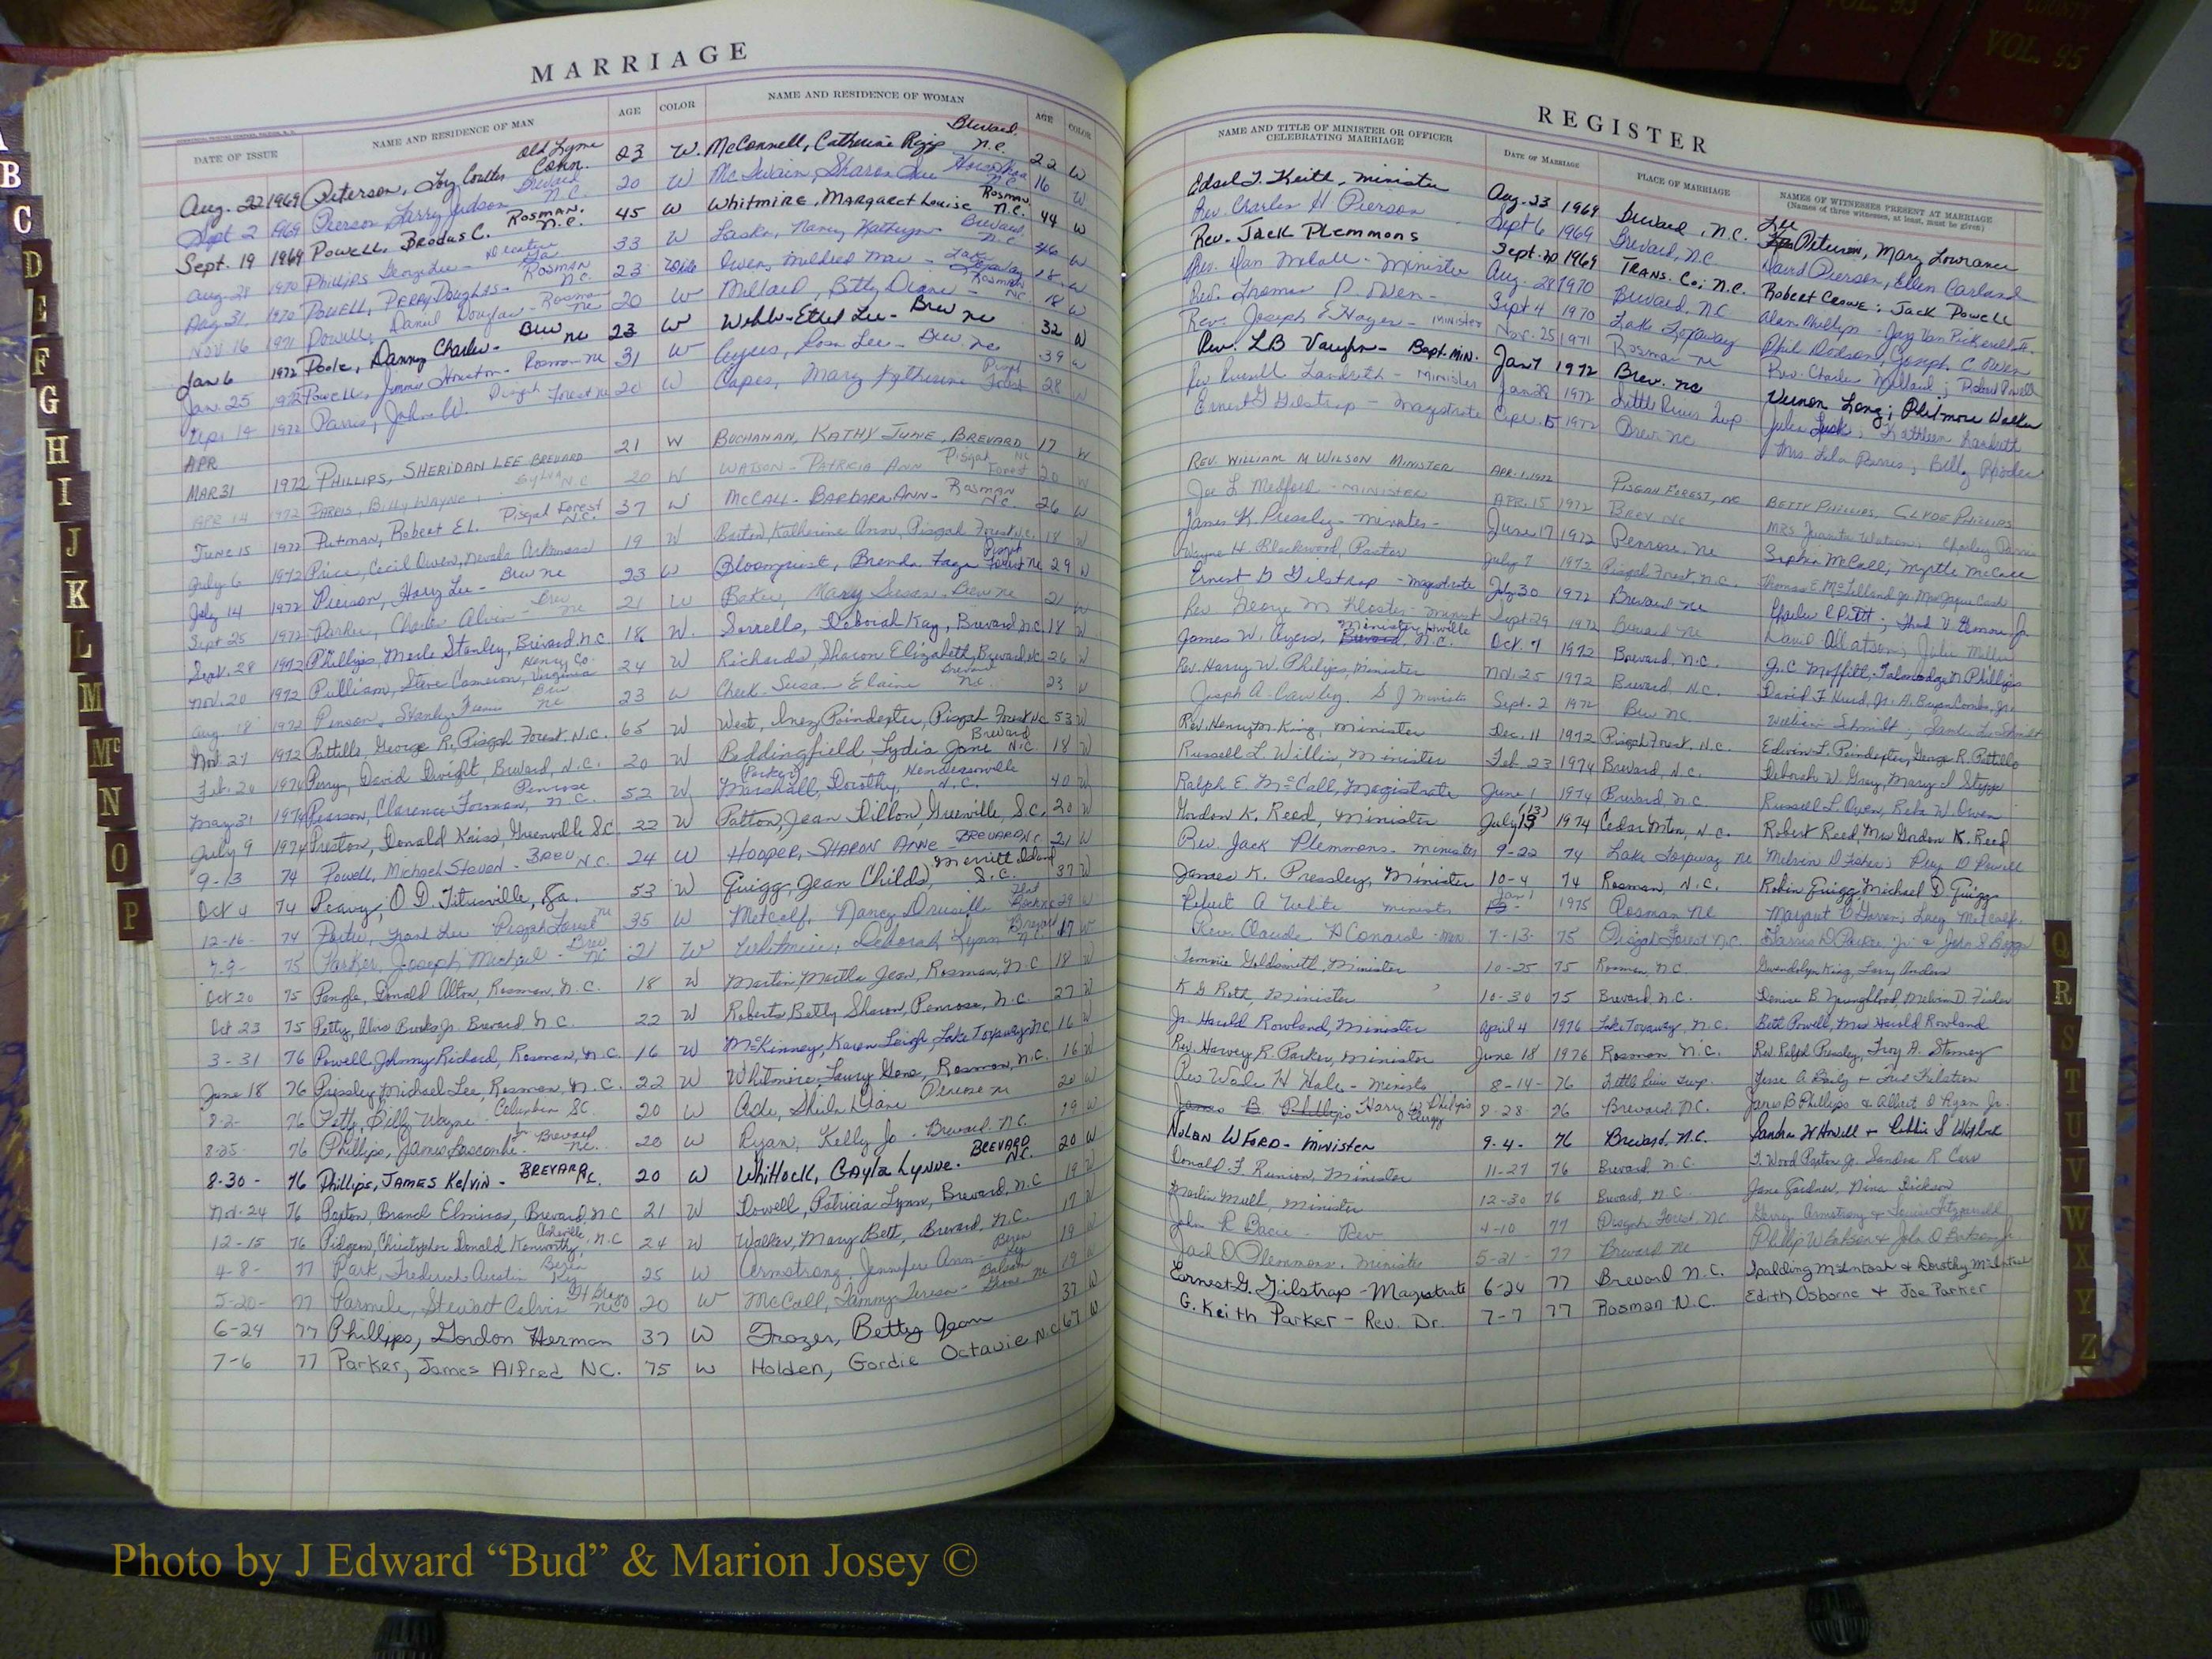 MARRIAGE
DATE OF ISSUE NAME AND RESIDENCE OF MAN AGE COLOR NAME AND RESIDENCE OF WOMAN AGE COLOR
Aug. 22 1969 Peterson, Old Lyme Conn. 23 W. McConnell, Catherine Brevard. N.C. 22 W
Sept 2 1969 Pierson Larry Judson Brevard N.C. 20 W McSwain, Sharon Sue N.C. 16 W
Sept. 19 1969 Powell, Brodus C. Rosman. N.C. 45 W Whitmire, Margaret Louise Rosman N.C. 44 W
Aug 28 1970 Phillips George Lee - Decatur Ga 33 W Laska, Nancy Kathryn Brevard N.C. W
Aug 31 1970 Powell, Perry Douglas - Rosman N.C. 23 White Owen, Mildred Mae - Lake Toxaway 18 W
Nov 16 1971 Powell, Daniel Douglas - Rosman NC 20 W Millard, Betty Diane - Rosman NC 18 W
Jan 6 1972 Poole, Danny Charles - Brev NC 23 W Webb - Ethel Lee - Brev NC 32 W
Jan. 25 1972 Powell, Jimmie Houston - Rosman NC 31 W Ayers, Rosa Lee - Brev. NC 39 W
Apr 14 1972 Parris, John W. Pisgah Forest NC 20 W Capes, Mary Katherine Pisgah Forest 28 W
APR
MAR 31 1972 PHILLIPS, SHERIDAN LEE BREVARD 21 W BUCHANAN, KATHY JUNE, BREVARD 17 W
APR 14 1972 PARRIS, Billy WAYNE, Sylva NC 20 W WATSON - PATRICIA ANN Pisgah Forest NC 20 W
June 15 1972 Putman, Robert El. Pisgah Forest N.C. 37 W McCALL - BARBARA ANN - Rosman N.C. 26 W
July 6 1972 Price, Cecil Owen, Nevada Arkansas 19 W Barton, Katherine Ann, Pisgah Forest N.C. 18 W
July 14 1972 Pierson, Harry Lee - Brev NC 23 W Bloomquist, Brenda Faye Pisgah Forest NC 29 W
Sept 25 1972 Parker, Charles Alvin - Brev NC 21 W Baker, Mary Susan - Brev NC 21 W
Sept. 28 1972 Phillips, Merle Stanley, Brevard N.C. 18 W. Sorrells, Deborah Kay, Brevard N.C. 18 W
Nov. 20 1972 Pulliam, Steve Cameron, Henry Co. Virginia 24 W Richards, Sharon Elizabeth, Brevard NC 26 W
Aug. 18 1972 Penson, Stanley Brev NC 23 W Cheek - Susan Elaine Brevard NC. 23 W
Nov 27 1972 Pattillo, George R, Pisgah Forest, N.C. 65 W West, Inez Poindexter, Pisgah Forest NC 53 W
Feb. 20 1974 Perry, David Dwight, Brevard, N.C. 20 W Beddingfield, Lydia Jane Brevard N.C. 18 W
May 31 1974 Pearson, Clarence Forman, Penrose N.C. 52 W Marshall, (Parker) Dorothy, Hendersonville N.C. 40 W
July 9 1974 Preston, Donald Keiss, Greenville S.C. 22 W Patton, Jean Dillon, Greenville, S.C. 20 W
9-13 74 Powell, Michael Steven - BREV N.C. 24 W HOOPER, SHARON ANNE - BREVARD N.C. 21 W
Oct 4 74 Peavy, O D. Titusville, Fla. 53 W Quigg, Jean Childs, Merritt Island S.C. 37 W
12-16- 74 Porter, Frank Lee Pisgah Forest NC 35 W Metcalf, Nancy Drusilla Flat Rock NC 29 W
7-9- 75 Parker, Joseph Michael - Brev. NC 21 W Whitmire, Deborah Lynn Brevard NC 17 W
Oct 20 75 Pangle, Donald Alton, Rosman, N.C. 18 W Martin, Myrtle Jean, Rosman, N.C 18 W
Oct 23 75 Petty, Alvis Brooks Jr. Brevard N.C. 22 W Roberts Betty Sharon, Penrose, N.C. 27 W
3-31 76 Powell, Johnny Richard, Rosman, N.C. 16 W McKinney, Karen Leigh, Lake Toxaway NC 16 W
June 18 76 Pressley Michael Lee, Rosman, N.C. 22 W Whitmire, Laury Gene, Rosman, N.C. 16 W
8-2- 76 Petty, Billy Wayne - Columbia SC. 20 W Cole, Sheila Diane Penrose NC 20 W
8-25- 76 Phillips, James Bascombe Jr Brevard NC. 20 W Ryan, Kelly Jo - Brevard N.C. 19 W
8-30- 76 Phillips, JAMES Kelvin - BREVARD N.C. 20 W WhiTlock, GAYLE Lynne. BREVARD NC. 20 W
Nov. 24 76 Paxton, Branch Elminas, Brevard, N.C 21 W Dowell, Patricia Lynn, Brevard, N.C 19 W
12-15 76 Pidgeon, Christopher Donald Kenworthy, Asheville, N.C 24 W Walker, Mary Beth, Brevard N.C. 17 W
4-8- 77 Park, Frederick Austin Berea Ky 25 W Armstrong, Jennifer Ann - Berea Ky 19 W
5-20- 77 Parmele, Stewart Calvin Ft Bragg NC 20 W McCall, Tammy Teresa - Balsam Grove NC 19 W
6-24 77 Phillips, Gordon Herman 37 W Frazer, Betty Jean 37 W
7-6 77 Parker, James Alfred NC. 75 W Holden, Gordie Octavie N.C 67 W
REGISTER
NAME AND TITLE OF MINISTER OR OFFICER CELEBRATING MARRIAGE DATE OF MARRIAGE PLACE OF MARRIAGE NAMES OF WITNESSES PRESENT AT MARRIAGE
(Names of three witnesses, at least, must be given)
Edsel T. Keith, minister Aug. 23 1969 Brevard, N.C. Lee Peterson, Mary Lowrance
Rev. Charles H. Pierson Sept 6 1969 Brevard, N.C David Pierson, Ellen Garland
Rev. Jack Plemmons Sept. 20 1969 TRANS. Co., N.C. Robert Crowe; Jack Powell
Rev. Dan McCall - Minister Aug. 28 1970 Brevard, N.C Alan Phillips - Jay Van
Rev. Thomas D. Owen - Sept 4 1970 Lake Toxaway Phil Dodson, Joseph C Owen
Rev. Joseph E Hayes - Minister Nov. 25 1971 Rosman NC Rev. Charles Millard; Robert Powell
Rev. LB Vaughn - Bapt. Min. Jan 7 1972 Brev. NC Vernon Long; Philmore Walker
Rev Russell Landreth - Minister Jan 29 1972 Little River Twp Julia Lusk, Kathleen Landreth
Ernest G Gilstrap - Magistrate Apr 15 1972 Brev. NC Mrs. Lula Parris; Billy Rhodes
REV. WILLIAM M WILSON MINISTER APR. 1, 1972 PISGAH FOREST, NC BETTY PHILLIPS, CLYDE PHILLIPS
Joe L Medford - MINISTER APR. 15 1972 BREV NC MRS Juanita Watson; Charley Parris
James K. Pressley - minister - June 17 1972 Penrose, NC Sophia McCall; Myrtle McCall
Wayne H. Blackwood, Pastor July 7 1972 Pisgah Forest, N.C. Thomas E McLelland Jr.
Ernest G Gilstrap - Magistrate July 30 1972 Brevard NC Charles C Pitt; Thad V Jr.
Rev George M Kloster - Minist Sept 29 1972 Brevard NC David Allatson; Julie Miller
James W. Ayers, Minister Brevard, N.C. Oct. 7 1972 Brevard, N.C. J.C Moffitt, Talmadge N Phillips
Rev. Harry W. Philips, Minister Nov. 25 1972 Brevard, N.C. David F. Hurd, Jr. A. Bryan Combs, Jr.
Joseph A. Cawley. S J Minister Sept. 2 1972 Brev NC William Schmidt,
Rev. Henryton King, Minister Dec. 11 1972 Pisgah Forest, N.C. Edwin F. Poindexter, George R. Pattillo
Russell L. Willis, Minister Feb. 23 1974 Brevard, N.C. Deborah W. Gray, Mary J Stepp
Ralph E. McCall, Magistrate June 1 1974 Brevard, N.C Russell L Owen, Reba W. Owen
Gordon K. Reed, Minister July (13) 1974 Cedar Mtn, N.C. Robert Reed, Mrs Gordon K. Reed
Rev. Jack Plemmons - minister 9-22 74 Lake Toxaway NC Melvin D Fisher; Perry D Powell
James K. Pressley, Minister 10-4 74 Rosman, N.C. Robin Quigg, Michael D. Quigg
Robert A White minister Jan 1 1975 Rosman NC Margaret B Larry Metcalf
Rev. Claude Conard - Min 7-13- 75 Pisgah Forest N.C. Harris D Parker Jr. &
Tommie Goldsmith, Minister 10-25 75 Rosman, N.C Gwendolyn King, Larry Anders
K G Roth, Minister 10-30 75 Brevard, N.C. Denise B. Youngblood, Melvin D. Fisher
Jr. Harold Rowland, Minister April 4 1976 Lake Toxaway, N.C. Beth Powell, Mrs Harold Rowland
Rev. Harvey R. Parker, Minister June 18 1976 Rosman N.C. Rev. Ralph Pressley, Troy A. Stamey
Rev Wade H Hale - Minister 8-14- 76 Little River Twp. Jesse A & Fred
James B. Phillips Harry W Philips Clergy 8-28- 76 Brevard, N.C. James B Phillips & Albert D Ryan Jr.
NoLAN W FORD - Minister 9-4- 76 Brevard, N.C. Sandra H Howell + S Whitlock
Donald F. Runion, Minister 11-27 76 Brevard, N.C. T. Wood Paxton Jr. Sandra R. Carr
Marlin Mull, Minister 12-30 76 Brevard, N.C. Jane Gardner, Nina Dickson
John R - Rev 4-10 77 Pisgah Forest NC George Armstrong & Louise Fitzgerald
Jack D Plemmons, Minister 5-21- 77 Brevard NC Phillip W & John O
Earnest G. Gilstrap - Magistrate 6-24 77 Brevard N.C. Spalding McIntosh & Dorothy McIntosh
G. Keith Parker - Rev. Dr. 7-7 77 Rosman N.C. Edith Osborne & Joe Parker
A
B
C
D
E
F
G
H
I
J
K
L
M
Mc
N
O
P
Q
R
S
T
U
V
W
X
Y
Z
VOL. 93
COUNTY
VOL. 95
Photo by J Edward “Bud” & Marion Josey ©